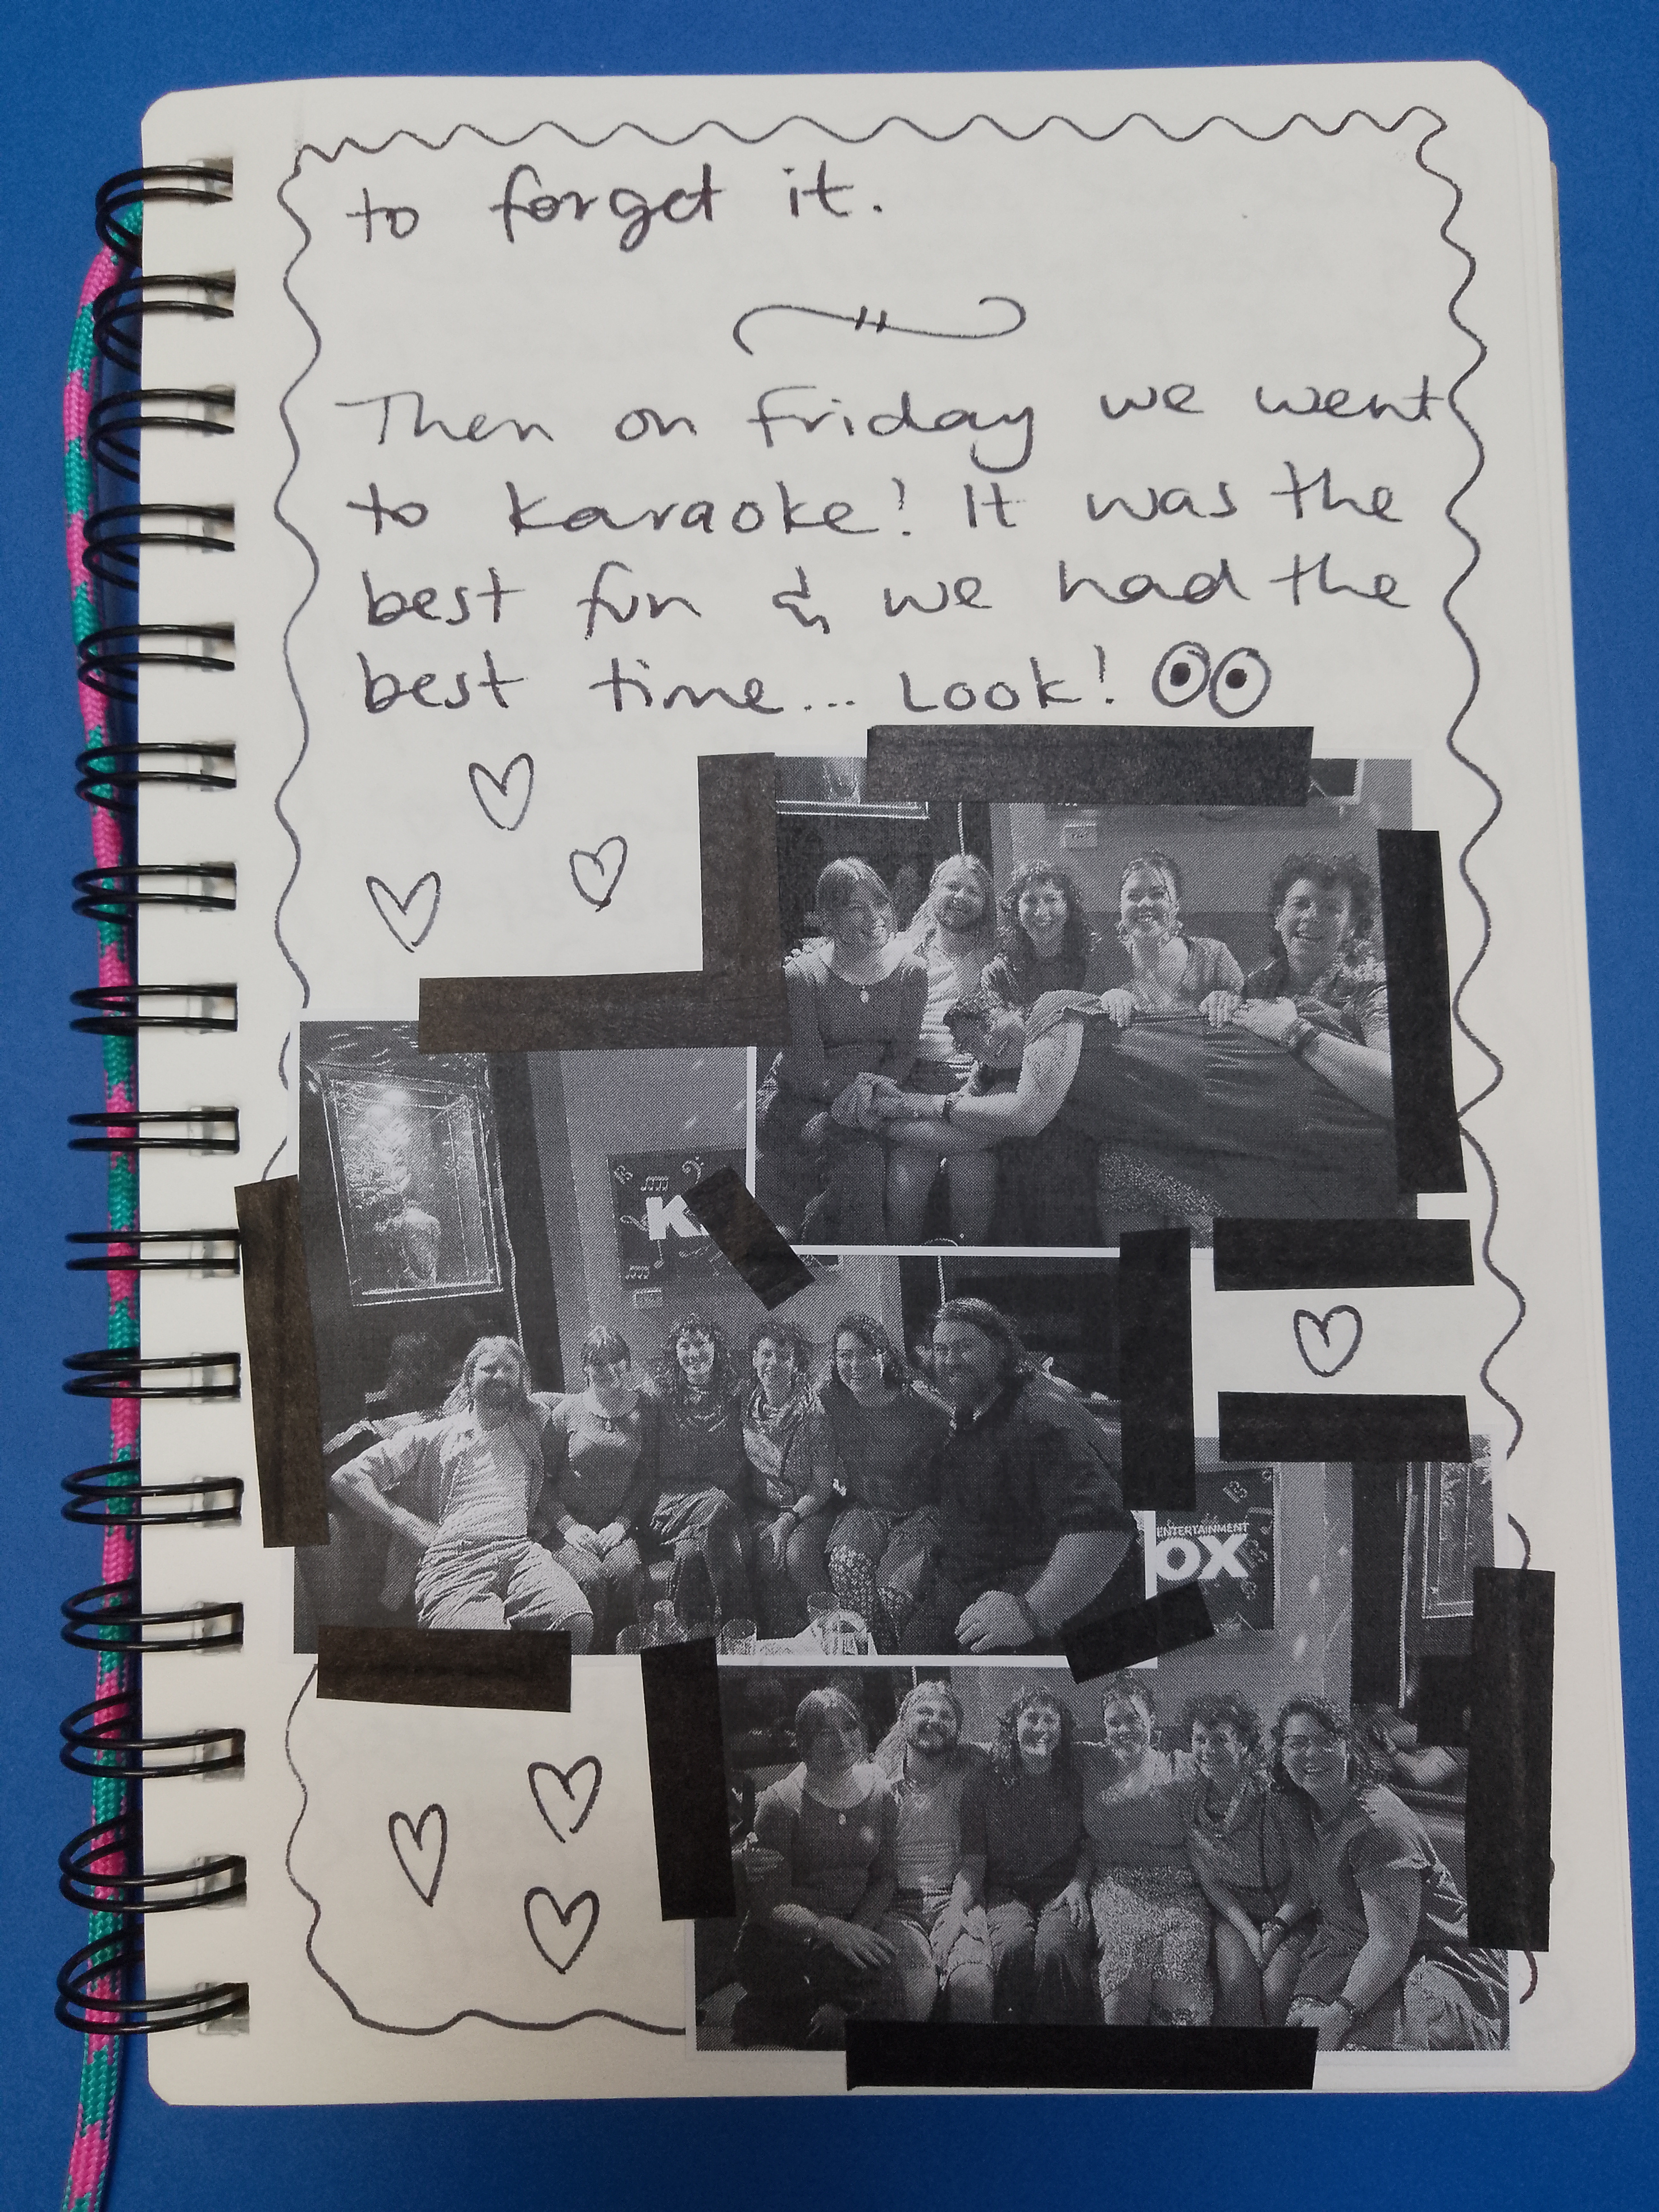 to forget it.
Then on Friday we went
to karaoke! It was the
best fun & we had the
best time... Look!
K
ENTERTAINMENT
OX